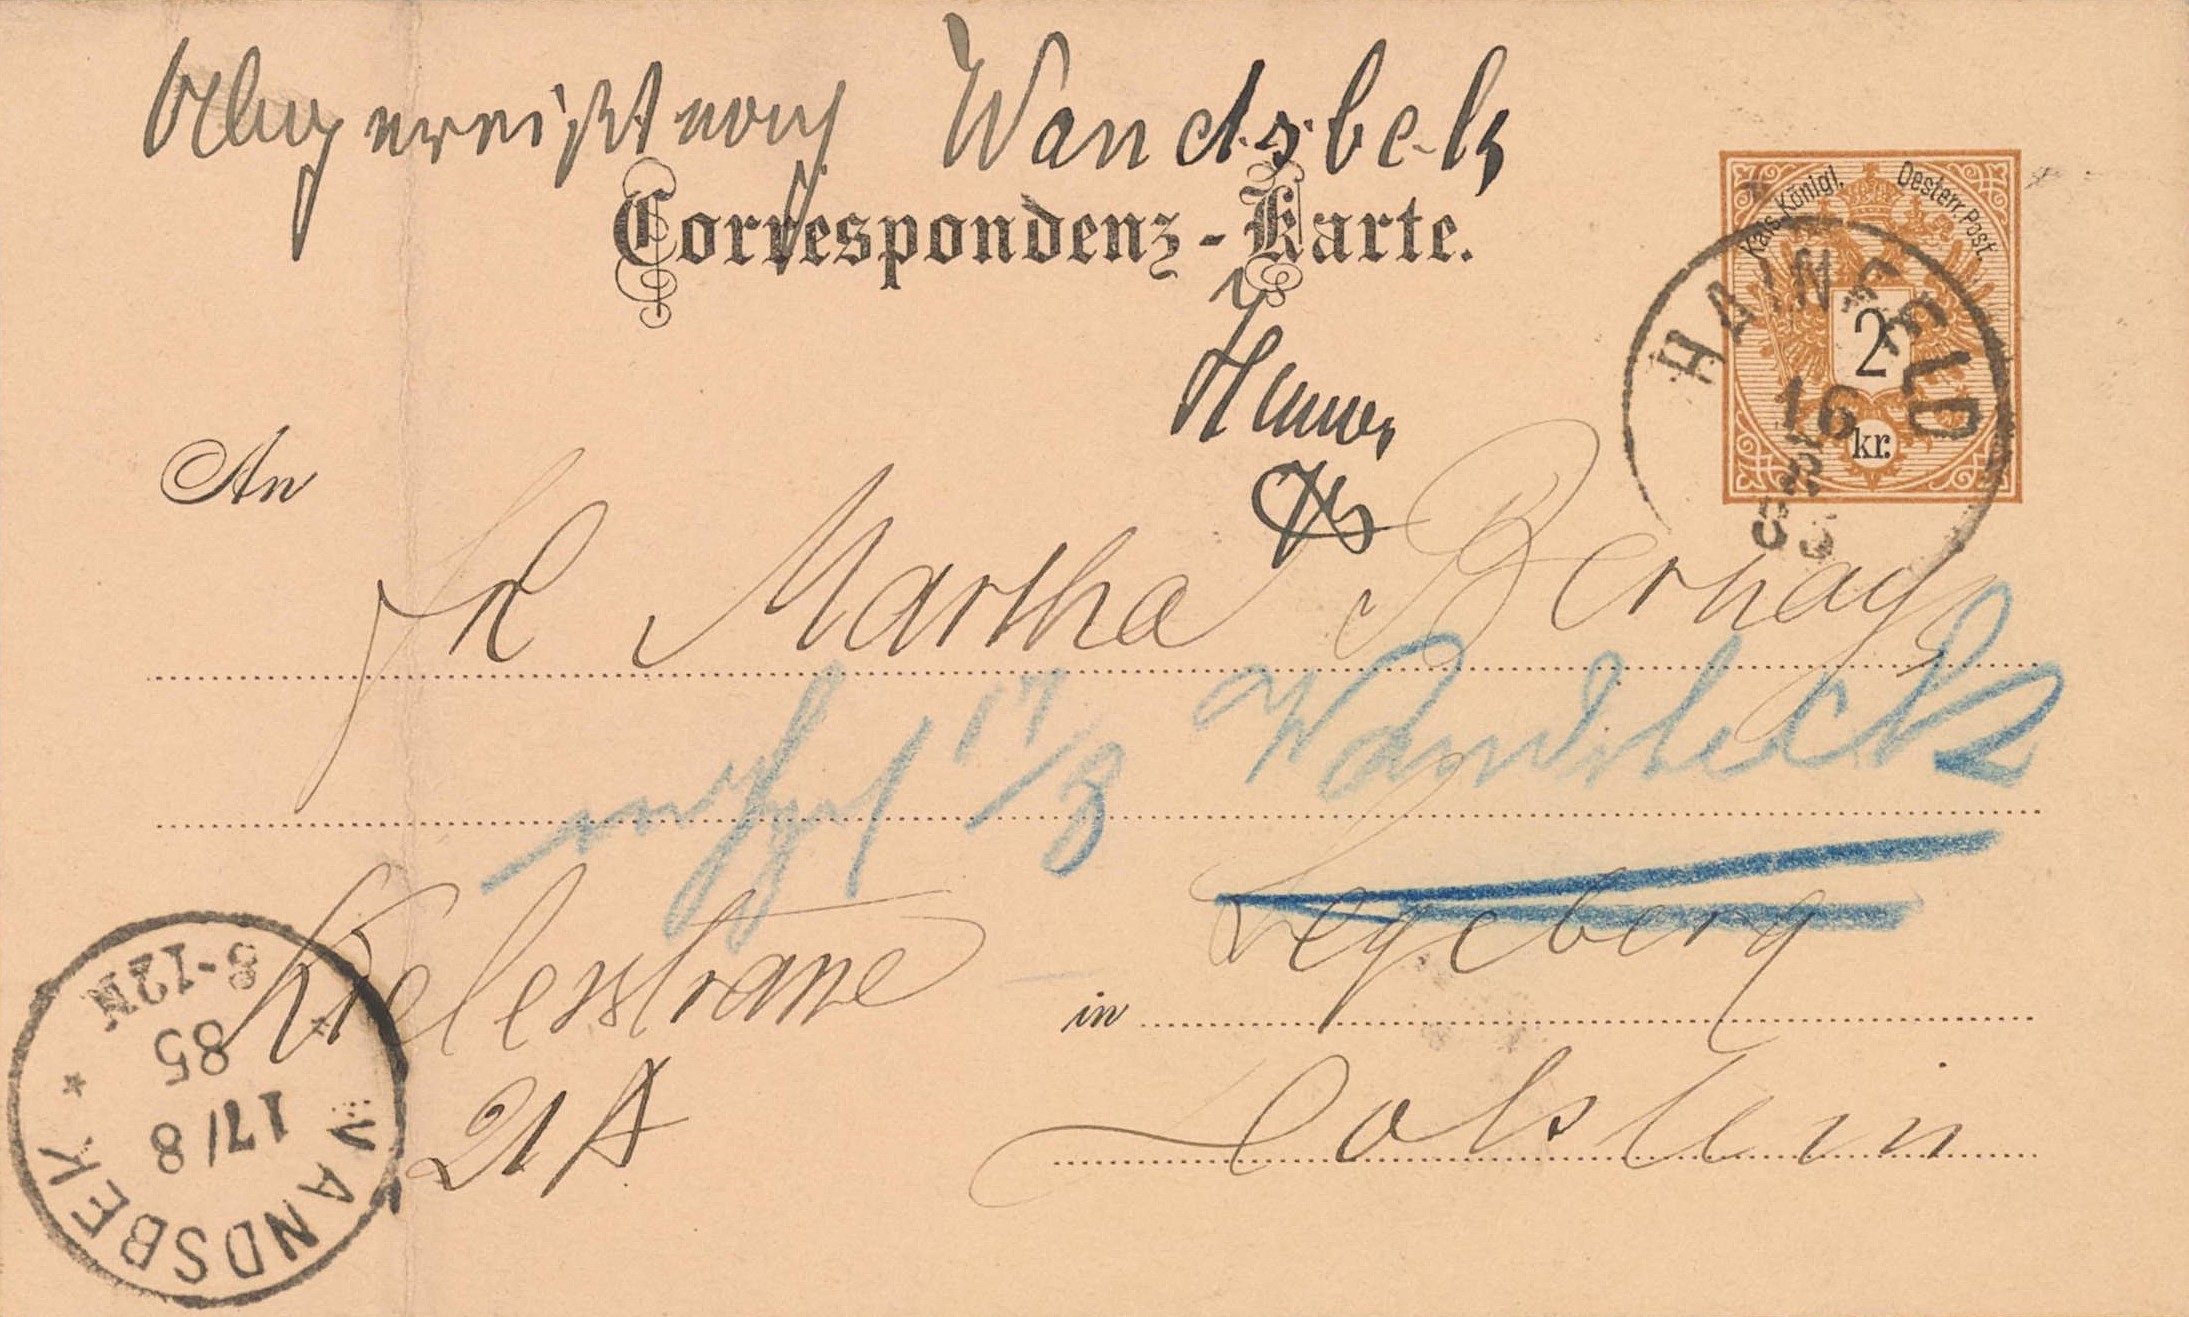 Abgereist nach Wandsbek
Correspondenz-Karte.
Kais. Königl. Oesterr. Post
2
kr.
HAINFELD
16
8
85
An
Frl Martha Bernays
17/8 Wandsbeck
Kielerstrasse
in Segeberg
21A
Holstein
WANDSBEK
17/8
85
8-12N